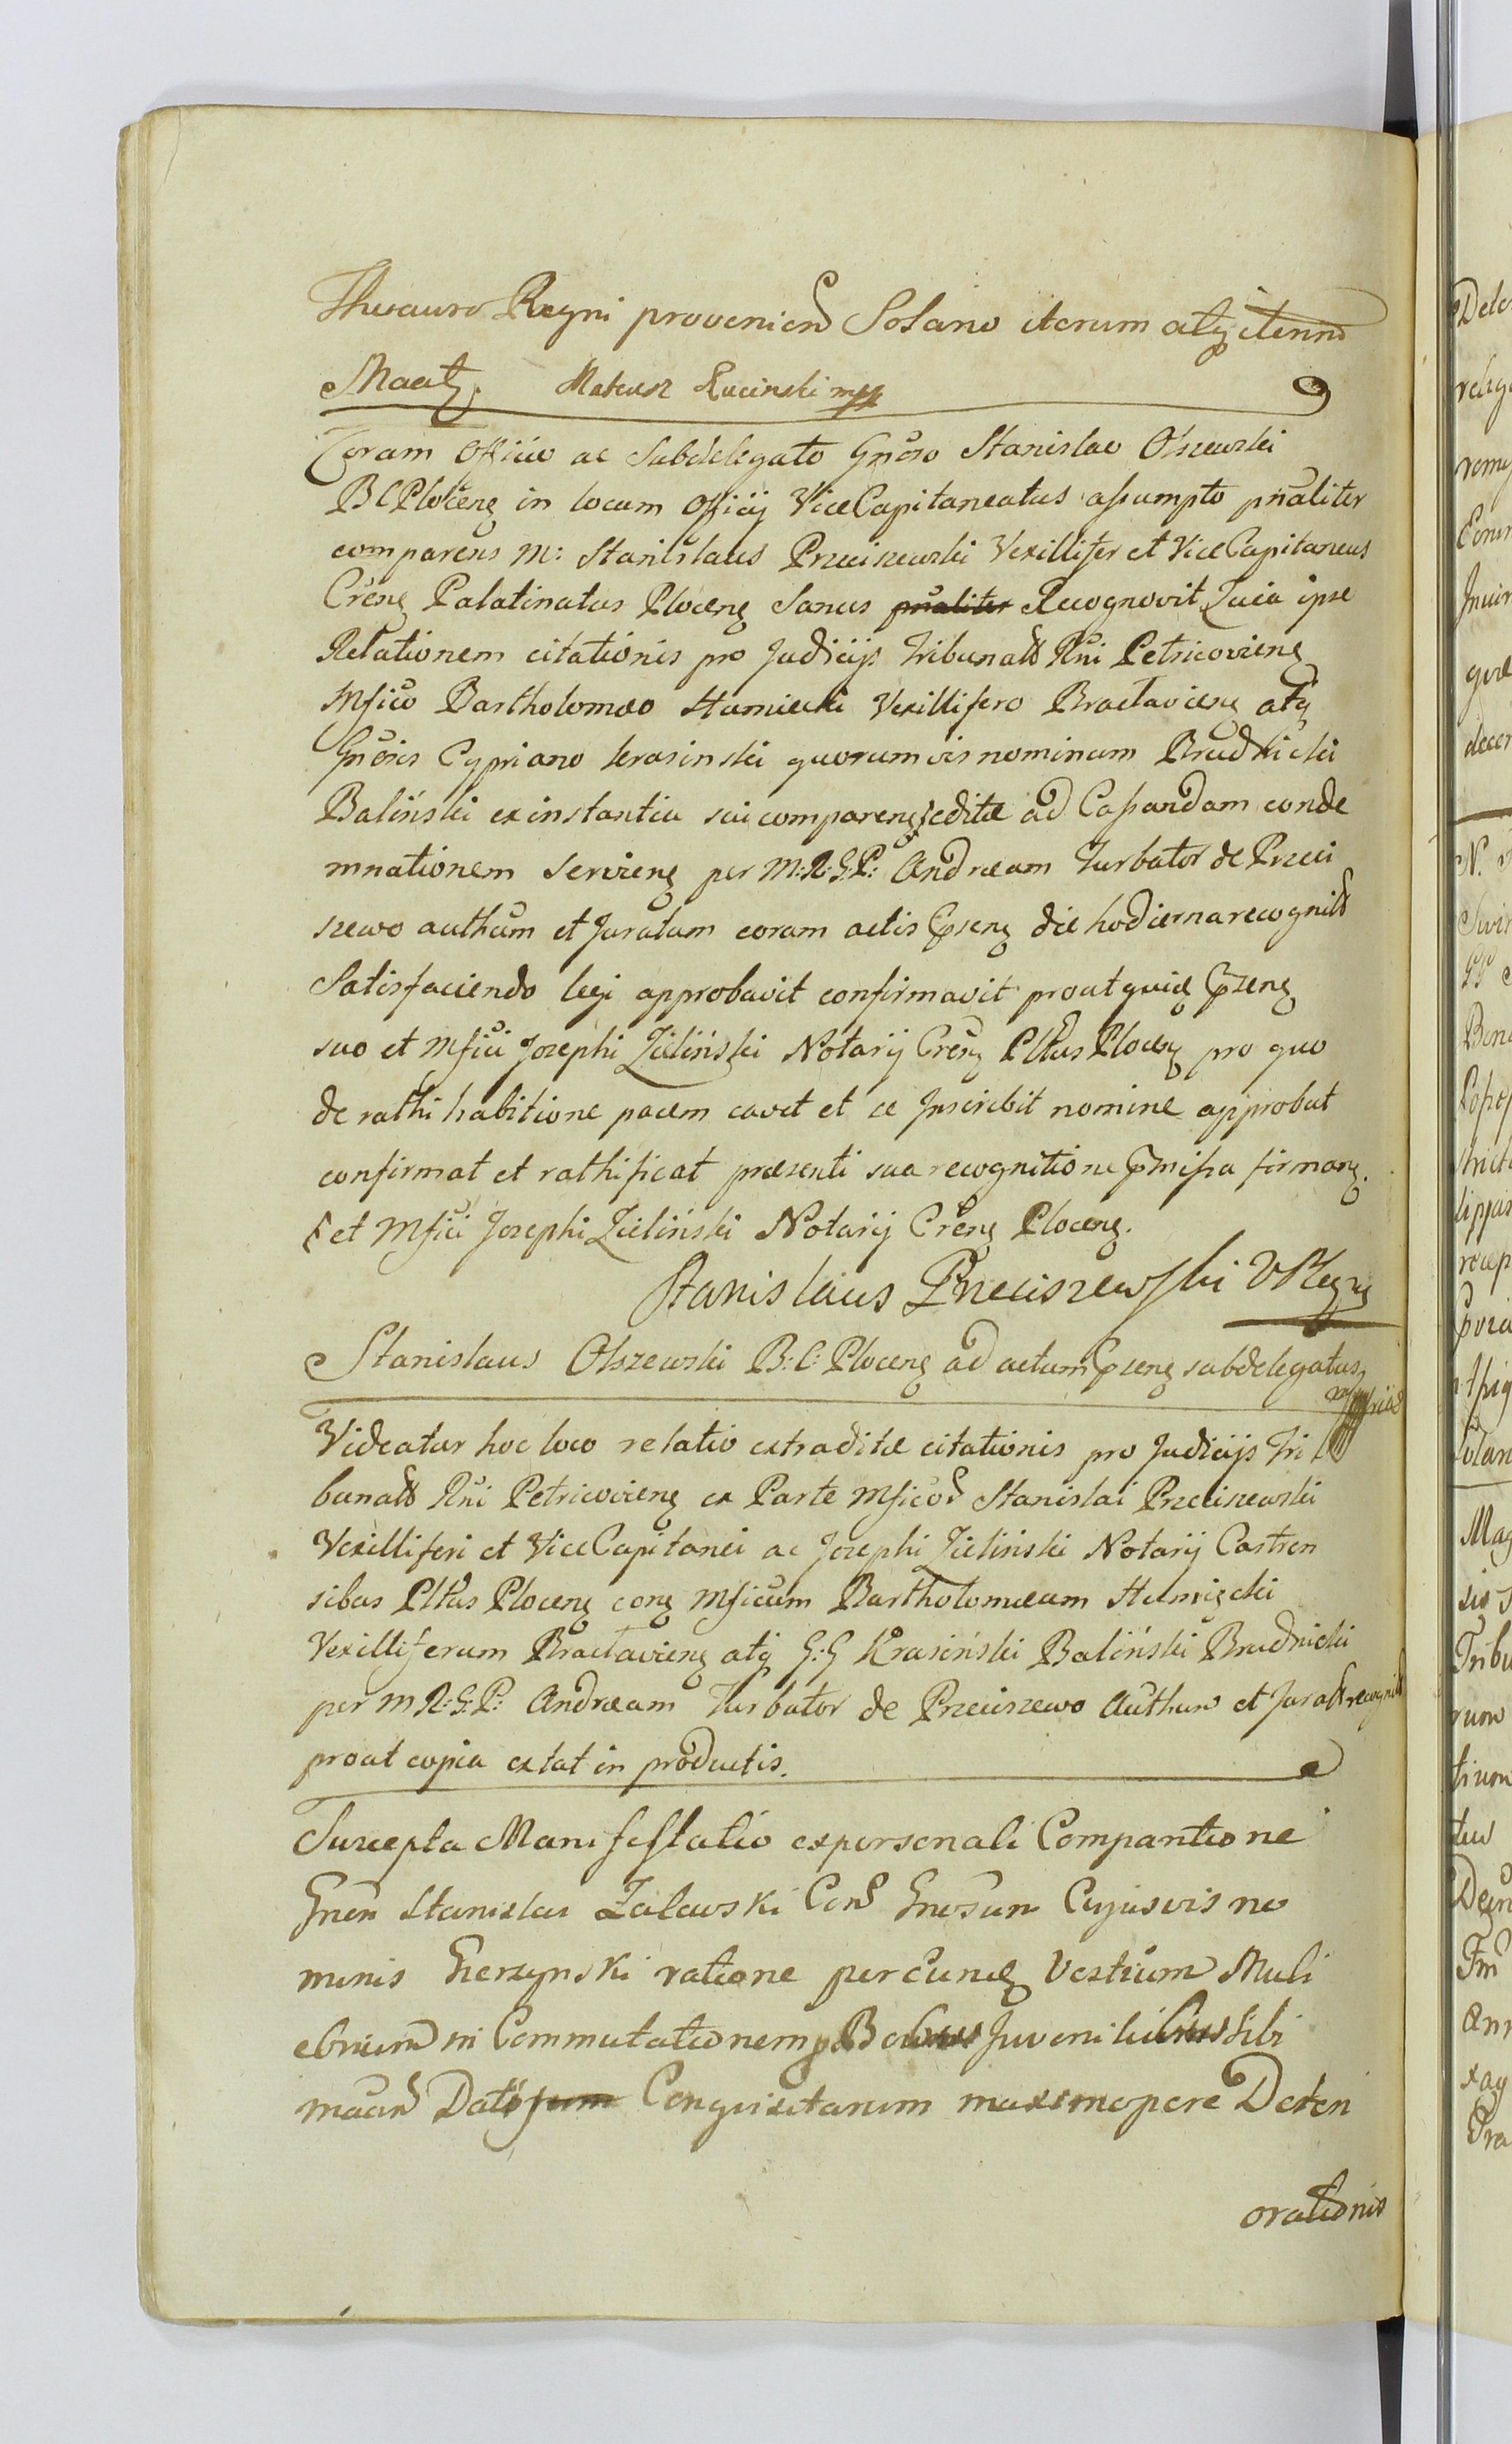 Thesauro Regni provenien Solano iterum atq iterum
Maatq. Mateusz Łuciński mpp
Coram Officio ac Subdelegato Gnoso Stanislao Olszewski
BC Ploceng in locum officij ViceCapitaneatus assumpto pnaliter
comparens M: Stanislaus Przeciszewski Vexillifer et ViceCapitaneus
Creng Palatinatus Ploceng Sanus pnaliter Recognovit Quia ipse
Relationem citationis pro Judicijs Tribunalis Rni Petricovieng
Mfico Bartholomeo Humiecki Vexillifero Bractavieng atq
Gnosis Cypriano Krasinski quorumvis nominum Brudnicki
Baliński ex instantia sui compareng editæ ad Cassandam conde
mnationem servieng per M:R:G:P: Andream Turbator de Przeci
szewo authum et Juratum coram actis Pseng die hodierna recognit
Satisfaciendo legi approbavit confirmavit prout quidq Pzeng
suo et Mfici Josephi Zieliński Notarij Creng Pltus Ploceng pro quo
de rathi habitione pacem cavet et se Inscribit nomine approbat
confirmat et rathificat præsenti sua recognitione Pmissa firmang.
et Mfici Josephi Zieliński Notarij Creng Ploceng.
Stanislaus Przeciszewski VPlczg
Stanislaus Olszewski B:C: Ploceng ad actum Pseng subdelegatus
Videatur hoc loco relatio extraditæ citationis pro Judicijs Tri
bunalis Rni Petricovieng ex Parte Mficor Stanislai Przeciszewski
Vexilliferi et ViceCapitanei ac Josephi Zieliński Notarij Castren
sibus Pltus Ploceng cong Mficum Bartholomeum Humięcki
Vexilliferum Bractavieng atq G:G Krasiński Baliński Brudnicki
per M R:G:P: Andream Turbator de Przeciszewo Authum et Jurat recognit
prout copia extat in productis.
Suscepta Manifestatio ex personali Comparitione
Gnen Stanislai Zalewski Con Gnosum Cujusvis no
minis Gierzynski ratione percunq Vestium Muli
ebrium in Commutationem p Bobus Juvenilibus sibi
Dat Conquisitarum maximopere Deten
orationis